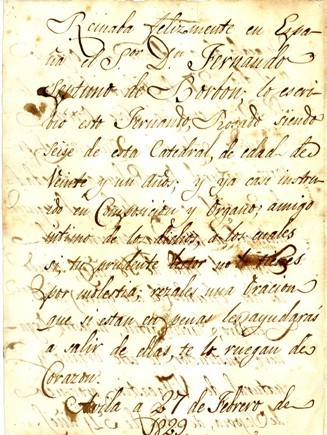 Reinaba felizmente en Espa
ña el Sor Dn Fernando
Septimo de Borbon; lo escri
bió este Fernando, Rogado siendo
seise de esta Catedral, de edad de
Veinte y un años; y ya casi instru
ido en Composicion y Organo; amigo
intimo de los dichos, a los cuales
si, tu prudente Lector no
por molestia, rezales una Oracion
que si estan en penas les ayudaras
a salir de ellas, te lo ruegan de
Corazon.
Avila a 27 de Febrero de
1829